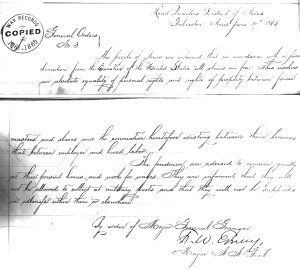 WAR RECORDS
COPIED
1861-1865
Head Quarters District of Texas
Galveston Texas June 19th 1865
General Orders
No. 3
The people of Texas are informed that in accordance with a procla-
mation from the Executive of the United States, all slaves are free. This involves
an absolute equality of personal rights and rights of property between former
masters and slaves and the connection heretofore existing between them becomes
that between employer and hired labor.
The freedmen are advised to remain quietly
at their present homes and work for wages. They are informed that they will
not be allowed to collect at military posts and that they will not be supported
in idleness either there or elsewhere.
By order of Major General Granger
F. W. Emery
Major A. A. G.